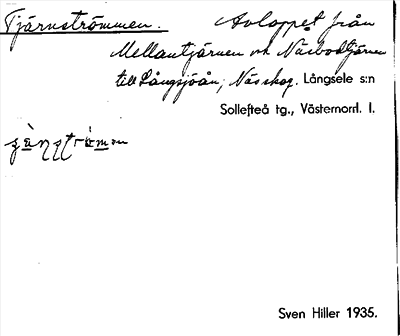 Tjärnströmmen. Avloppet från
Mellantjärnen och Näsbodtjärnen
till Långsjöån, Nässkog. Långsele s:n
Sollefteå tg., Västernorrl. l.
Sven Hiller 1935.